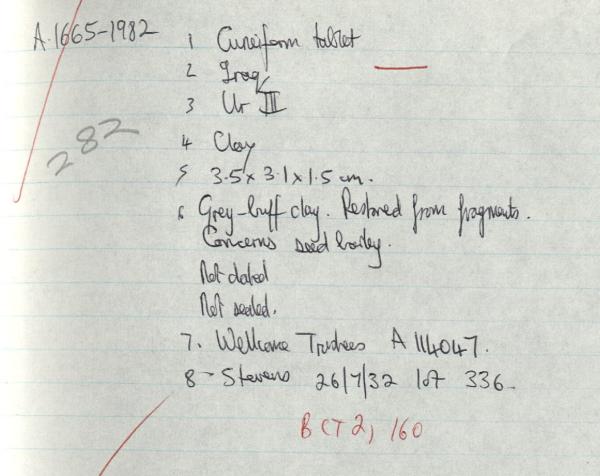 A.1665-1982
1 Cuneiform tablet
2 Iraq
3 Ur III
282
4 Clay
5 3.5 x 3.1 x 1.5 cm.
6 Grey-buff clay. Restored from fragments.
Concerns seed barley.
Not dated
Not sealed.
7. Wellcome Trustees A 114047.
8 - Stevens 26/7/32 lot 336.
BCT 2, 160